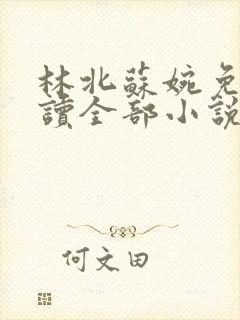 林北蘇婉免
讀全部小說
何文田